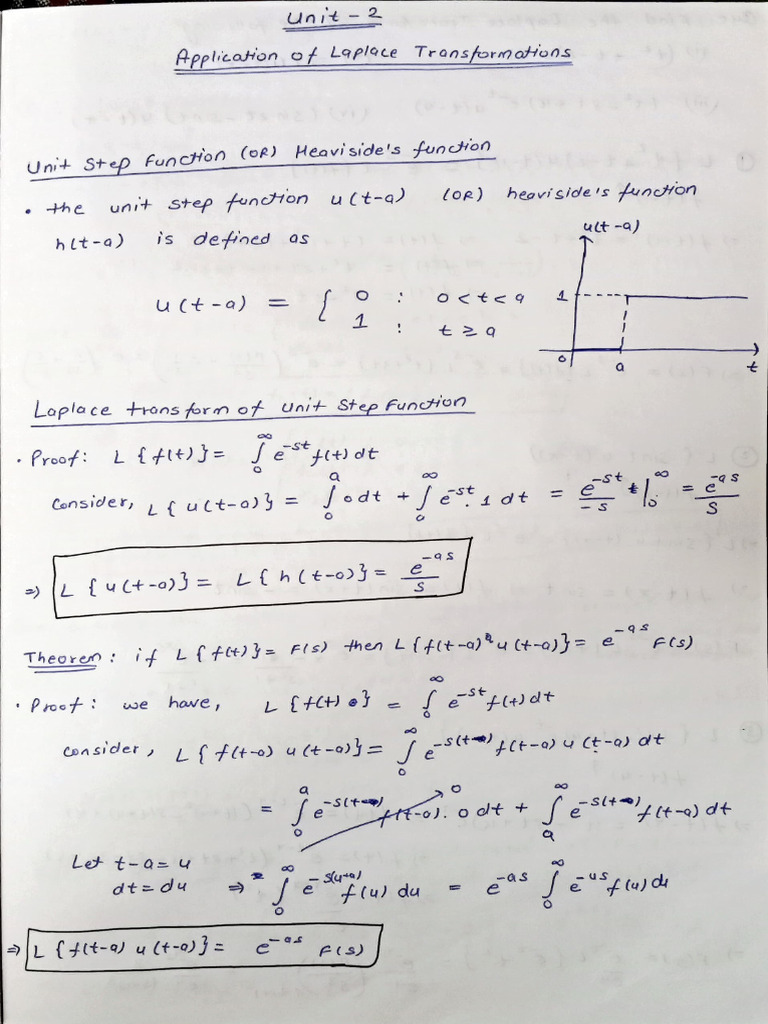 Unit - 2
Application of Laplace Transformations
Unit Step Function (OR) Heaviside's function
• the unit step function u(t-a) (OR) heaviside's function
h(t-a) is defined as
u(t-a)
u(t-a) = { 0 : 0 < t < a
1 : t ≥ a
1
0 a t
Laplace transform of Unit Step Function
• Proof: L {f(t)} = ∫₀^∞ e^-st f(t) dt
Consider, L{ u(t-a)} = ∫₀^a 0 dt + ∫₀^∞ e^-st . 1 dt = e^-st/-s |₀^∞ = e^-as/s
⇒ L {u(t-a)} = L{ h(t-a)} = e^-as/s
Theorem: if L{f(t)} = F(s) then L{f(t-a) u(t-a)} = e^-as F(s)
• Proof: we have, L {f(t)} = ∫₀^∞ e^-st f(t) dt
consider, L{ f(t-a) u(t-a)} = ∫₀^∞ e^-s(t) f(t-a) u(t-a) dt
= ∫₀^a e^-s(t) f(t-a). 0 dt + ∫ₐ^∞ e^-s(t) f(t-a) dt
0
Let t-a = u
dt = du ⇒ ∫₀^∞ e^-s(u+a) f(u) du = e^-as ∫₀^∞ e^-us f(u) du
⇒ L {f(t-a) u(t-a)} = e^-as F(s)